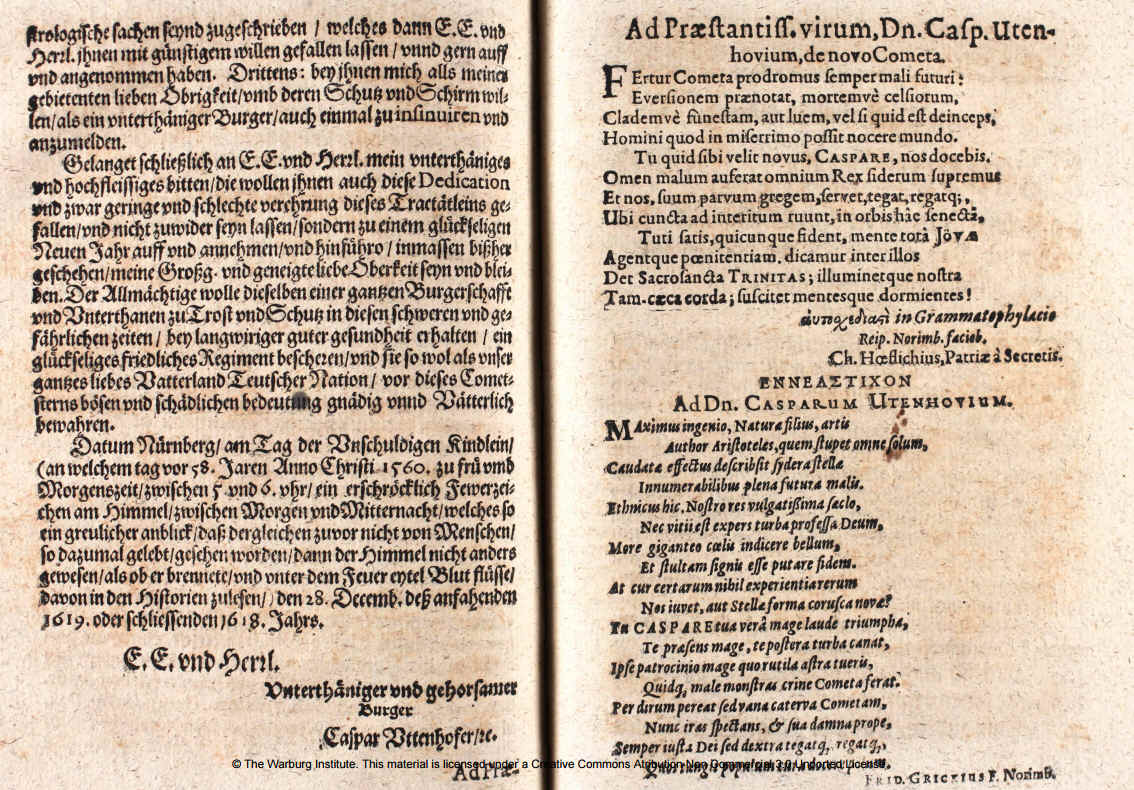 strologische sachen seynd zugeschrieben / welches dann E.E. vnd
Herrl. jhnen mit günstigem willen gefallen lassen / vnnd gern auff
vnd angenommen haben. Drittens: bey jhnen mich alls meinen
gebietenten lieben Obrigkeit / vmb deren Schutz vnd Schirm wil-
len / als ein vnterthäniger Burger / auch einmal zu insinuiren vnd
anzumelden.
Gelanget schließlich an E.E. vnd Herrl. mein vnterthäniges
vnd hochfleissiges bitten / die wollen jhnen auch diese Dedication
vnd zwar geringe vnd schlechte verehrung dieses Tractätleins ge-
fallen / vnd nicht zuwider seyn lassen / sondern zu einem glückseligen
Neuen Jahr auff vnd annehmen / vnd hinführo / inmassen bißher
geschehen / meine Großg. vnd geneigte liebe Oberkeit seyn vnd blei-
ben. Der Allmächtige wolle dieselben einer gantzen Burgerschafft
vnd Vnterthanen zu Trost vnd Schutz in diesen schweren vnd ge-
fährlichen zeiten / bey langwiriger guter gesundheit erhalten / ein
glückseliges friedliches Regiment bescheren / vnd sie so wol als vnser
gantzes liebes Vatterland Teutscher Nation / vor dieses Comet-
sterns bösen vnd schädlichen bedeutung gnädig vnnd Vätterlich
bewahren.
Datum Nürnberg / am Tag der Vnschuldigen Kindlein /
(an welchem tag vor 58. Jaren Anno Christi 1560. zu frü vmb
Morgenszeit / zwischen 5 vnd 6. vhr / ein erschröcklich Fewerzei-
chen am Himmel / zwischen Morgen vnd Mitternacht / welches so
ein greulicher anblick / daß dergleichen zuvor nicht von Menschen /
so dazumal gelebt / gesehen worden / dann der Himmel nicht anders
gewesen / als ob er brennete / vnd vnter dem Feuer eytel Blut flüsse /
davon in den Historien zulesen /) den 28. Decemb. deß anfahenden
1619. oder schliessenden 1618. Jahrs.
E. E. vnd Herrl.
Vnterthäniger vnd gehorsamer
Burger
Caspar Vttenhofer / ꝛc.
Ad Præ-
Ad Præstantiss. virum, Dn. Casp. Uten-
hovium, de novo Cometa.
FErtur Cometa prodromus semper mali futuri:
Eversionem prænotat, mortemvè celsiorum,
Clademvè funestam, aut luem, vel si quid est deinceps,
Homini quod in miserrimo possit nocere mundo.
Tu quid sibi velit novus, CASPARE, nos docebis.
Omen malum auferat omnium Rex siderum supremus
Et nos, suum parvum gregem, servet, tegat, regatq;,
Ubi cuncta ad interitum ruunt, in orbis hâc senectâ,
Tuti satis, quicunque fident, mente totâ Jovæ
Agentque pœnitentiam, dicamur inter illos
Det Sacrosancta TRINITAS; illuminetque nostra
Tam cæca corda; suscitet mentesque dormientes!
αὐτοσχεδιαστὶ in Grammatophylacio
Reip. Norimb. facieb.
Ch. Hœflichius, Patriæ à Secretis.
ΕΝΝΕΑΣΤΙΧΟΝ
Ad Dn. CASPARUM UTENHOVIUM.
MAximus ingenio, Natura filius, artis
Author Aristoteles, quem stupet omne solum,
Caudatæ effectus describsit sydera stellæ
Innumerabilibus plena futura malis.
Ethnicus hic, Nostro res vulgatissima sæclo,
Nec vitii est expers turba professa Deum,
More giganteo cœlis indicere bellum,
Et stultam signis esse putare fidem.
At cur certarum nihil experientia rerum
Nos iuvet, aut Stella forma corusca novæ?
Tu CASPARE tua verâ mage laude triumpha,
Te præsens mage, te postera turba canat,
Ipse patrocinio mage quo rutila astra tueris,
Quidq, male monstras crine Cometa ferat.
Per dirum pereat sed vana caterva Cometam,
Nunc iras spectans, & sua damna prope,
Semper iusta Dei sed dextra tegatq, regatq,,
FRID. GRICKIUS F. Norimb.
© The Warburg Institute. This material is licensed under a Creative Commons Atribution Non Commercial 3.0 Unported License